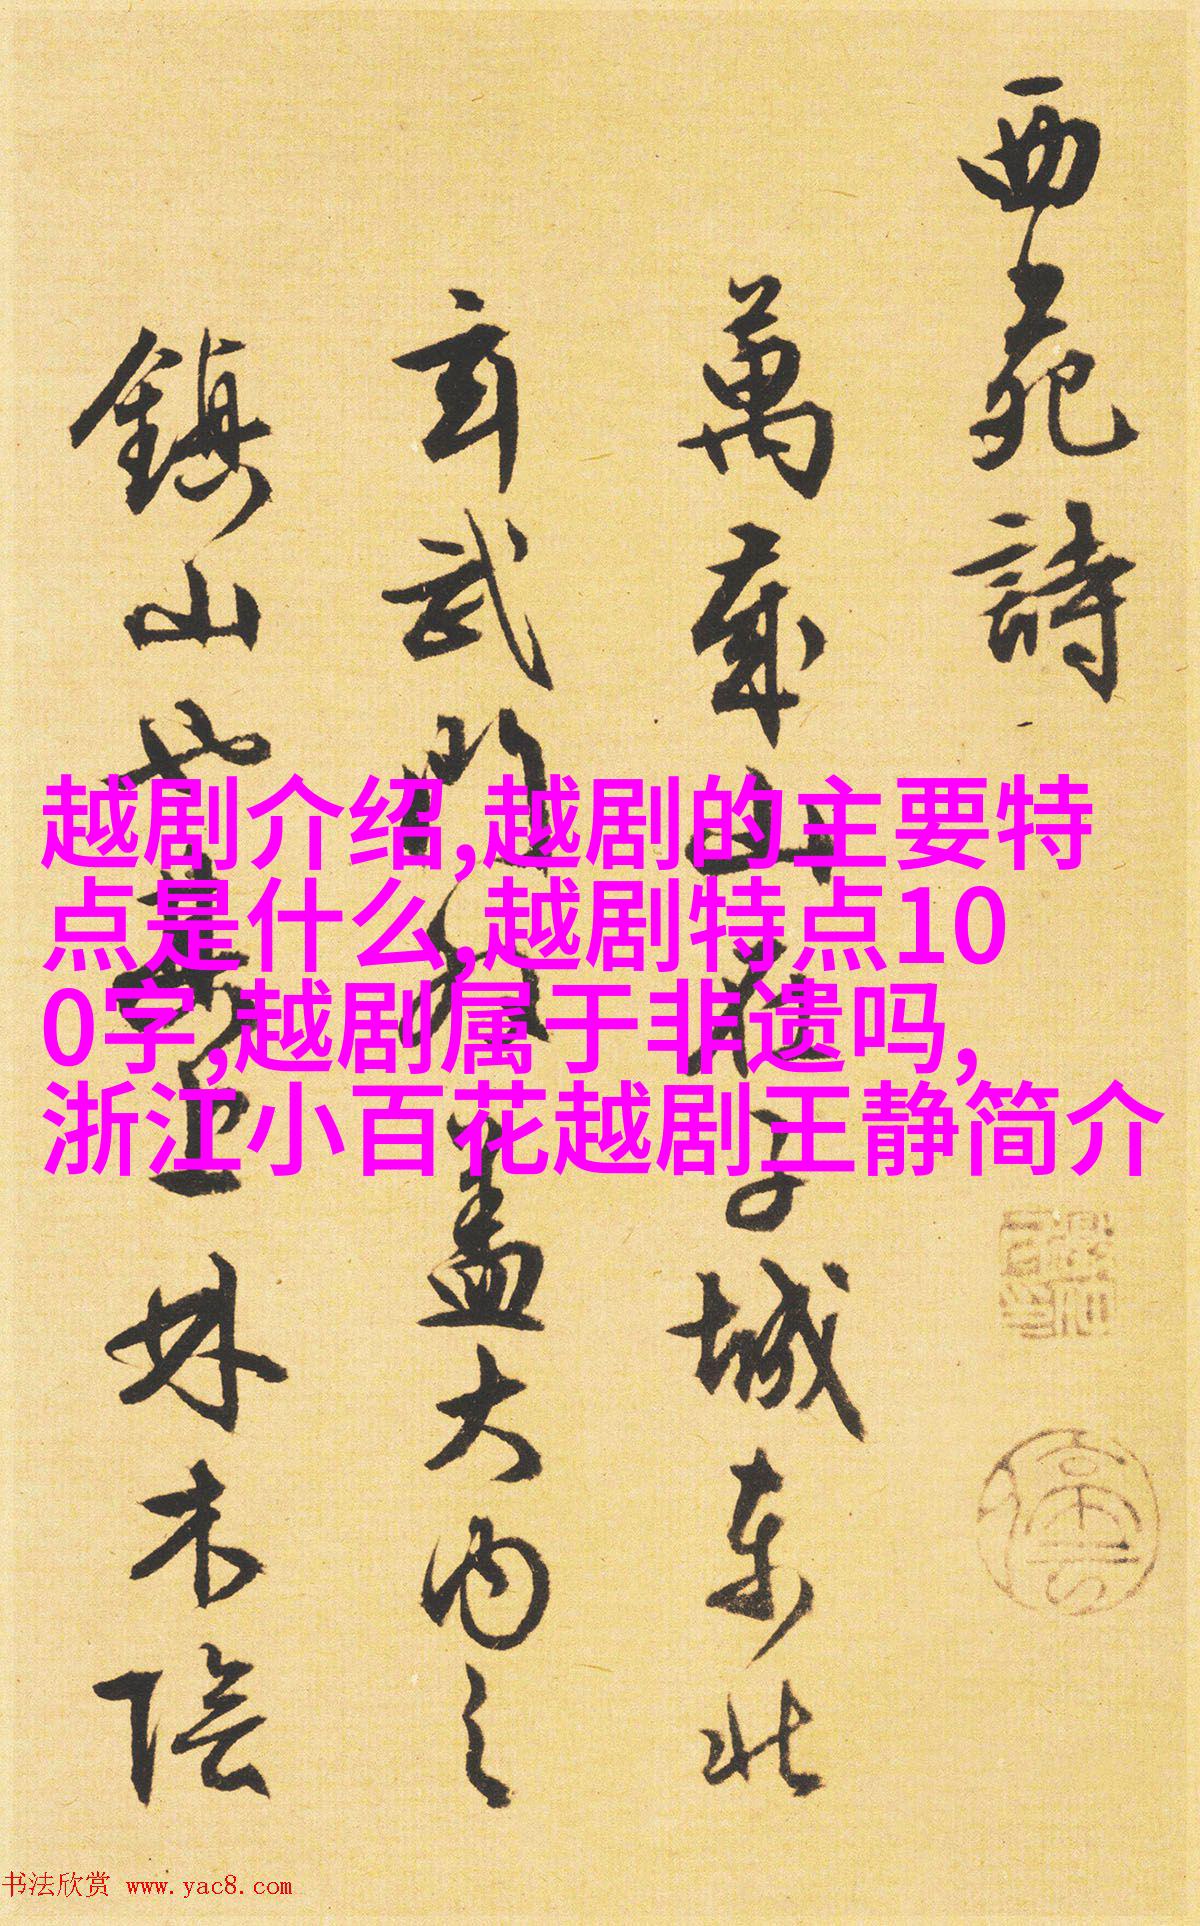 西苑詩
萬歲山在子城東北
玄武門外蓋大內之
鎮山上林木陰
越剧介绍,越剧的主要特
点是什么,越剧特点10
0字,越剧属于非遗吗,
浙江小百花越剧王静简介
书法欣赏 www.yac8.com